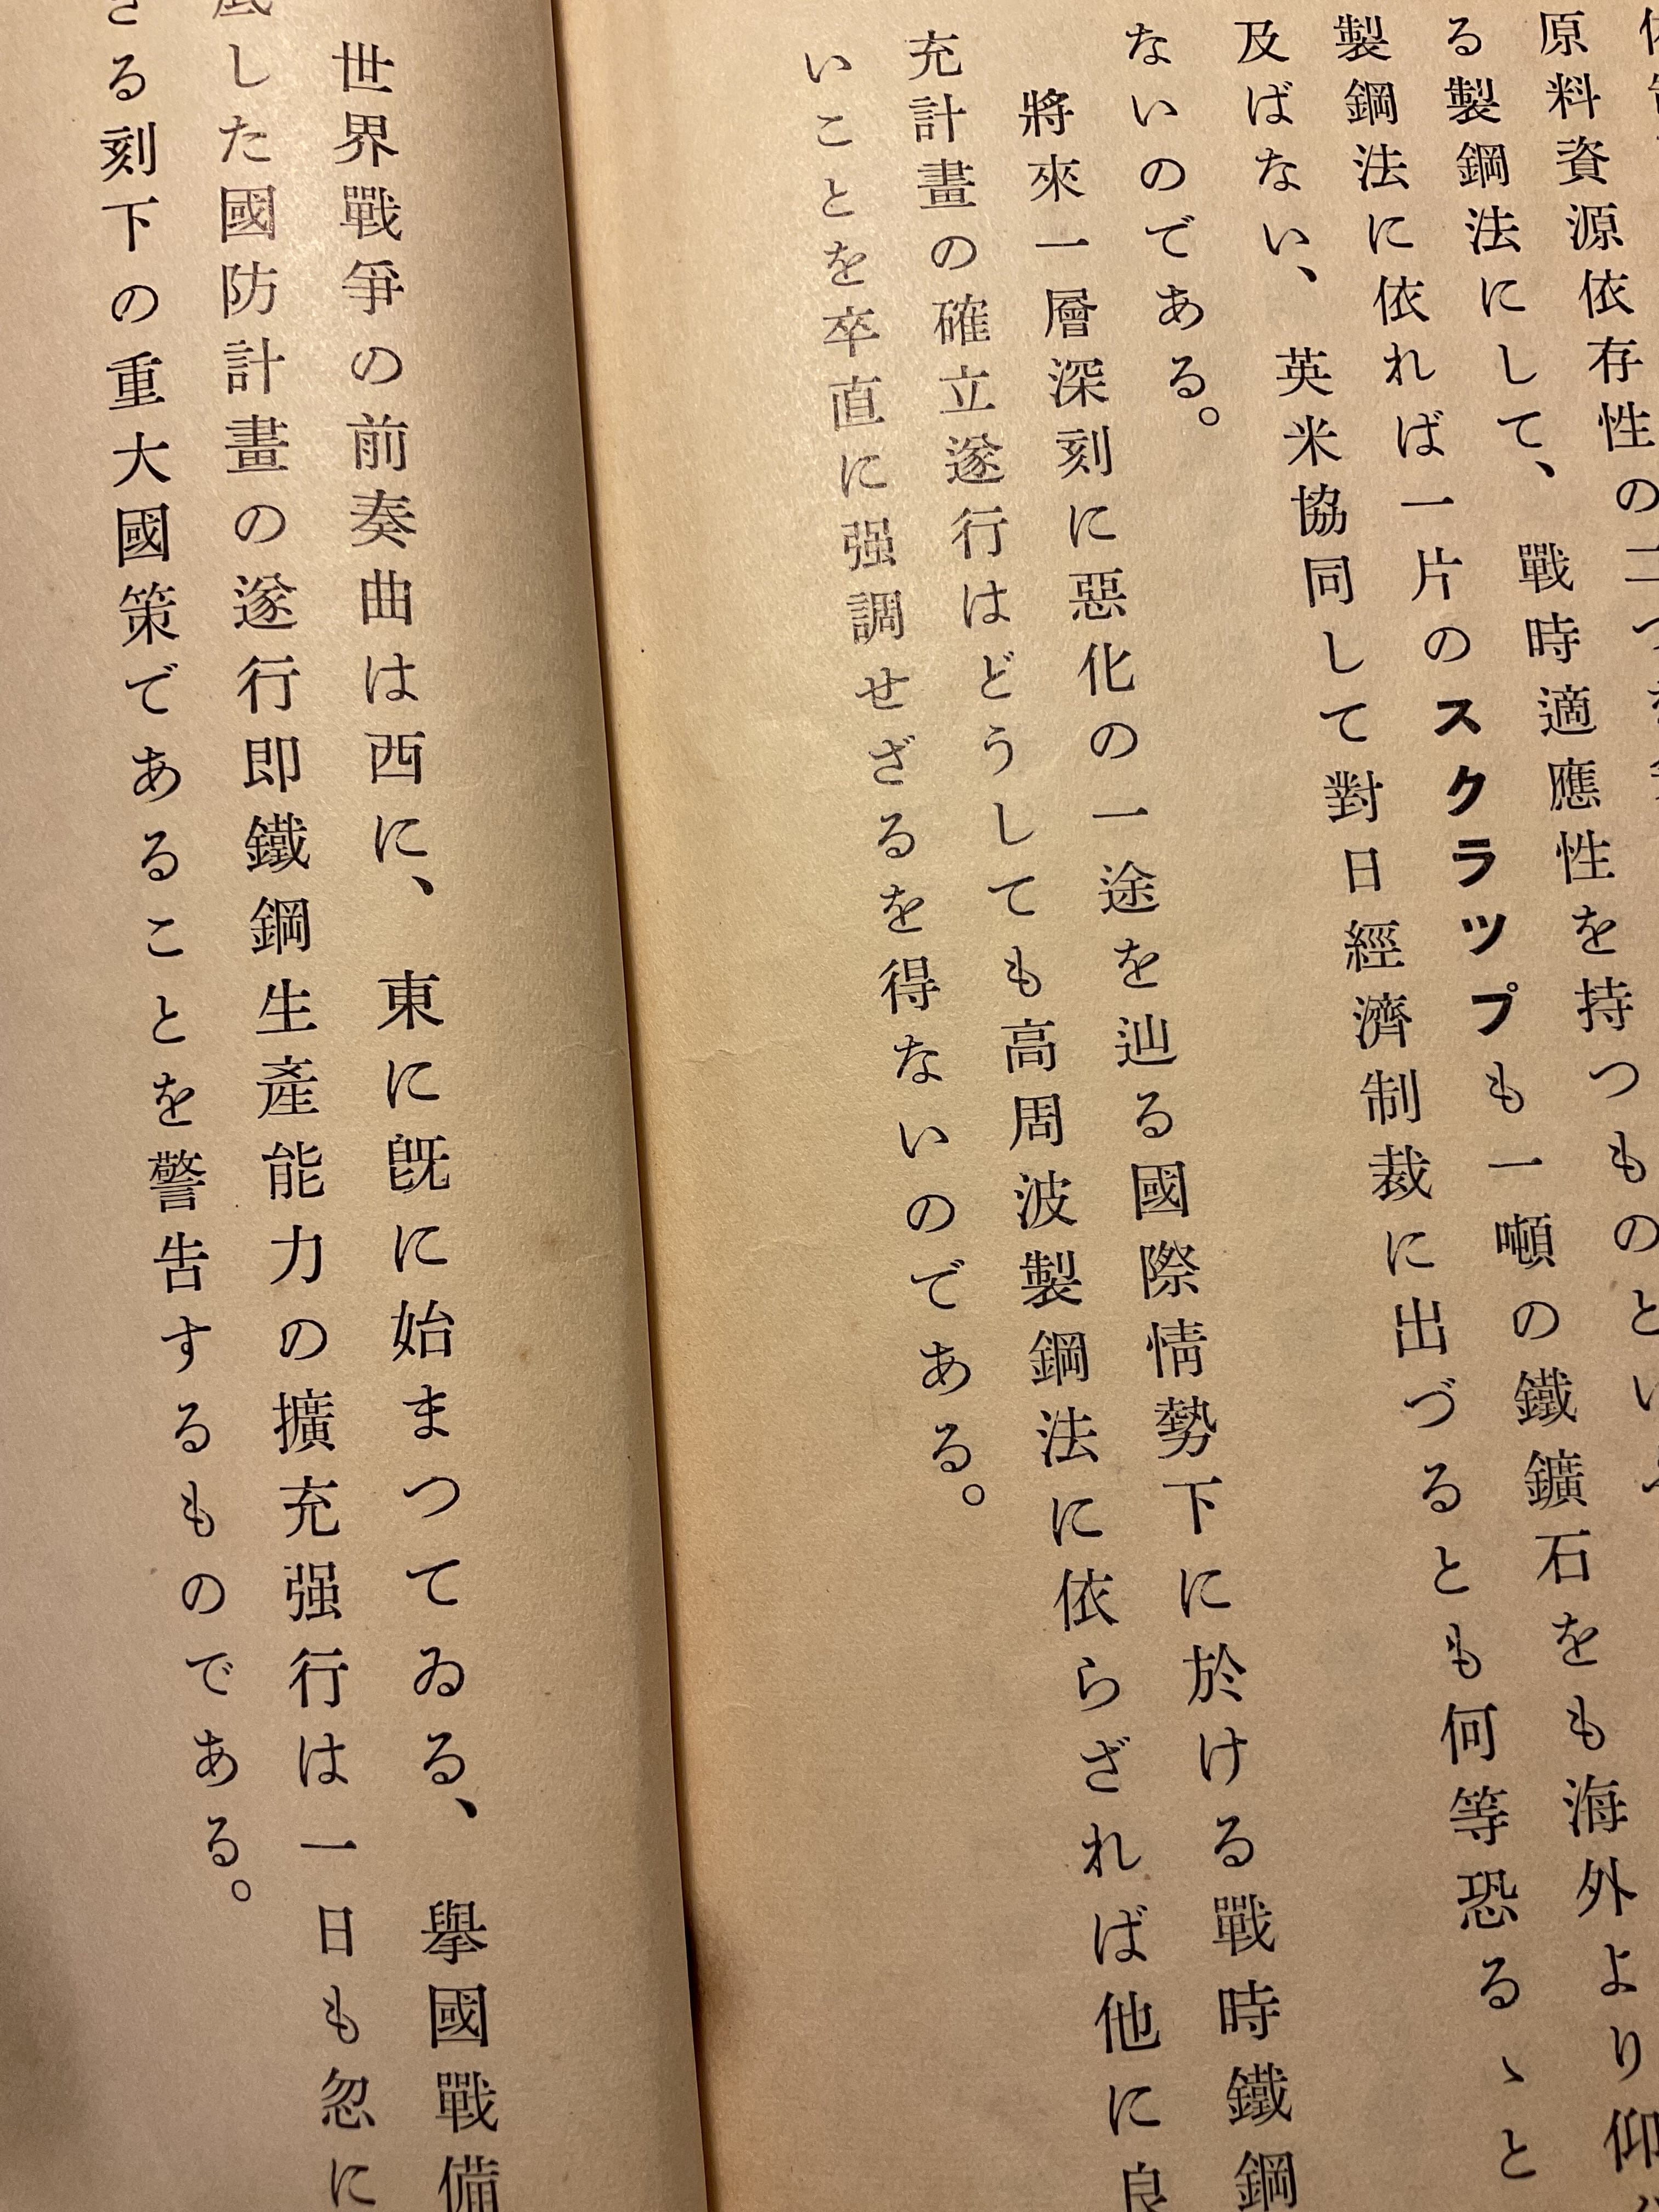 原料資源依存性の二つ
る製鋼法にして、戰時適應性を持つものとい
製鋼法に依れば一片のスクラップも一噸の鐵鑛石をも海外より仰
及ばない、英米協同して對日經濟制裁に出づるとも何等恐るゝと
ないのである。
將來一層深刻に惡化の一途を辿る國際情勢下に於ける戰時鐵鋼
充計畫の確立遂行はどうしても高周波製鋼法に依らざれば他に良
いことを卒直に强調せざるを得ないのである。
世界戰爭の前奏曲は西に、東に旣に始まつてゐる、擧國戰備
底した國防計畫の遂行即鐵鋼生產能力の擴充强行は一日も忽に
さる刻下の重大國策であることを警告するものである。